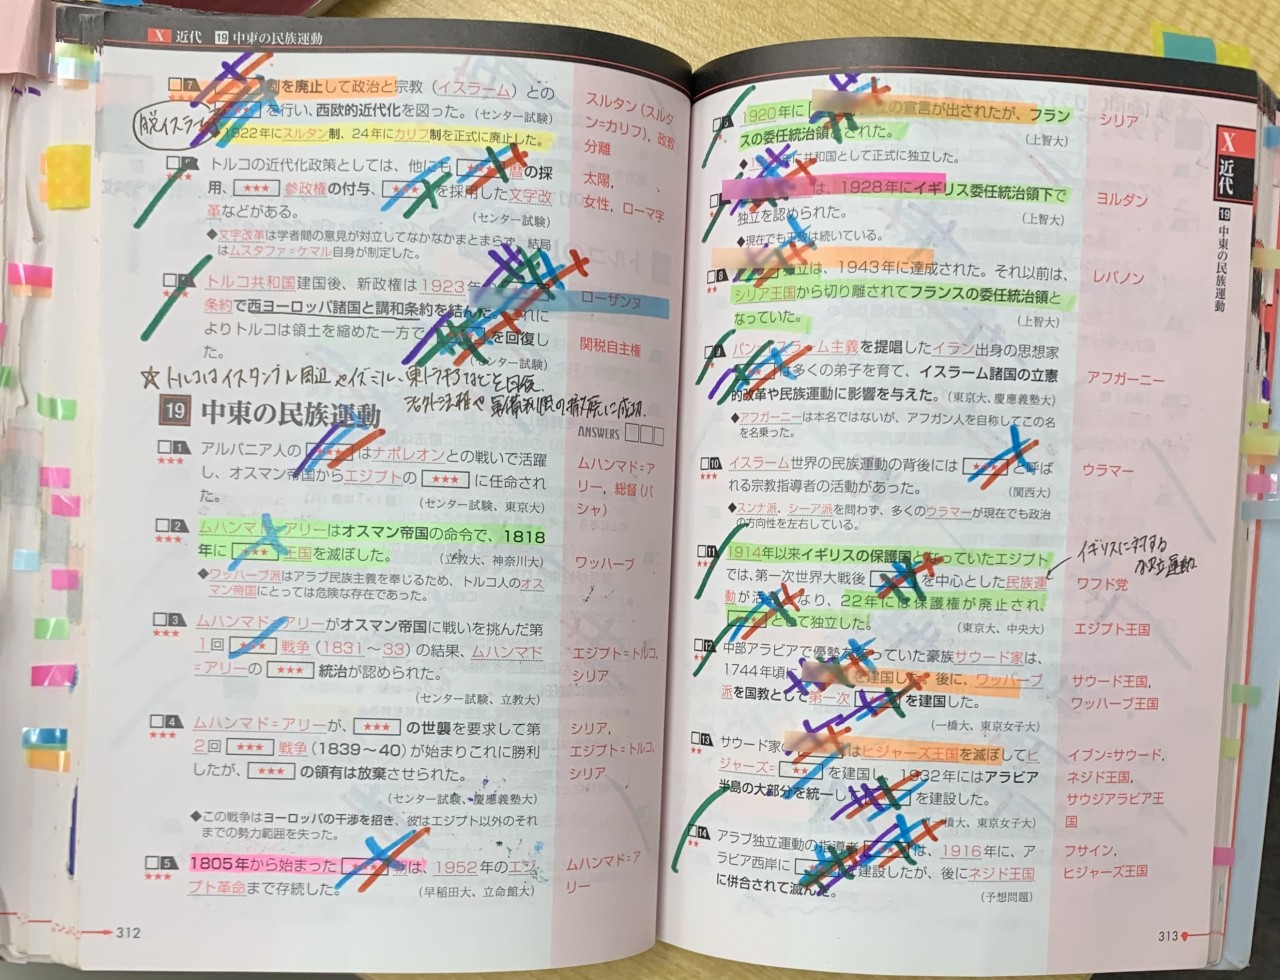 X 近代 19 中東の民族運動
7 制を廃止して政治と宗教（イスラーム）との
を行い、西欧的近代化を図った。（センター試験）
1922年にスルタン制、24年にカリフ制を正式に廃止した。
スルタン（スルタ
ン＝カリフ），政教
分離
トルコの近代化政策としては、他にも 暦の採
用、 ★★★ 参政権の付与、 を採用した文字改
革などがある。
（センター試験）
太陽，
女性，ローマ字
◆文字改革は学者間の意見が対立してなかなかまとまらず、結局
はムスタファ＝ケマル自身が制定した。
トルコ共和国建国後、新政権は1923年
条約で西ヨーロッパ諸国と講和条約を結んだ。これに
よりトルコは領土を縮めた一方で を回復し
た。
（センター試験）
ローザンヌ
関税自主権
☆トルコはイスタンブル周辺やイズミル、東トラキアなどを回復、
19 中東の民族運動
ANSWERS
1 アルバニア人の ★★★ はナポレオンとの戦いで活躍
し、オスマン帝国からエジプトの ★★★ に任命され
た。
（センター試験、東京大）
ムハンマド＝ア
リー，総督（パ
シャ）
2 ムハンマド＝アリーはオスマン帝国の命令で、1818
年に ★★★ 王国を滅ぼした。
（立教大、神奈川大）
ワッハーブ
◆ワッハーブ派はアラブ民族主義を奉じるため、トルコ人のオス
マン帝国にとっては危険な存在であった。
3 ムハンマド＝アリーがオスマン帝国に戦いを挑んだ第
1回 ★★★ 戦争（1831～33）の結果、ムハンマド
＝アリーの ★★★ 統治が認められた。
（センター試験、立教大）
エジプト＝トルコ，
シリア
4 ムハンマド＝アリーが、 ★★★ の世襲を要求して第
2回 ★★★ 戦争（1839～40）が始まりこれに勝利
したが、 ★★★ の領有は放棄させられた。
（センター試験、慶應義塾大）
シリア，
エジプト＝トルコ，
シリア
◆この戦争はヨーロッパの干渉を招き、彼はエジプト以外のそれ
までの勢力範囲を失った。
5 1805年から始まった ★★★ 朝は、1952年のエジ
プト革命まで存続した。
（早稲田大、立命館大）
ムハンマド＝ア
リー
312
1920年に の宣言が出されたが、フラン
スの委任統治領とされた。
（上智大）
シリア
年に共和国として正式に独立した。
は、1928年にイギリス委任統治領下で
独立を認められた。
（上智大）
ヨルダン
◆現在でも王政は続いている。
8 独立は、1943年に達成された。それ以前は、
シリア王国から切り離されてフランスの委任統治領と
なっていた。
（上智大）
レバノン
9 パン＝イスラーム主義を提唱したイラン出身の思想家
は多くの弟子を育て、イスラーム諸国の立憲
的改革や民族運動に影響を与えた。（東京大、慶應義塾大）
アフガーニー
◆アフガーニーは本名ではないが、アフガン人を自称してこの名
を名乗った。
10 イスラーム世界の民族運動の背後には ★★★ と呼ば
れる宗教指導者の活動があった。
（関西大）
ウラマー
◆スンナ派、シーア派を問わず、多くのウラマーが現在でも政治
の方向性を左右している。
11 1914年以来イギリスの保護国となっていたエジプト
では、第一次世界大戦後 を中心とした民族運
動が活発になり、22年には保護権が廃止され、
として独立した。
（東京大、中央大）
イギリスに対する
独立運動
ワフド党
エジプト王国
12 中部アラビアで優勢を誇っていた豪族サウード家は、
1744年頃に を建国した。後に、ワッハーブ
派を国教として第一次 を建国した。
（一橋大、東京女子大）
サウード王国，
ワッハーブ王国
13 サウード家の はヒジャーズ王国を滅ぼしてヒ
ジャーズ＝ ★★ を建国し、1932年にはアラビア
半島の大部分を統一し を建設した。
（一橋大、東京女子大）
イブン＝サウード，
ネジド王国，
サウジアラビア王
国
14 アラブ独立運動の指導者 は、1916年に、ア
ラビア西岸に を建設したが、後にネジド王国
に併合されて滅んだ。
（予想問題）
フサイン，
ヒジャーズ王国
X
近代
19
中東の民族運動
313